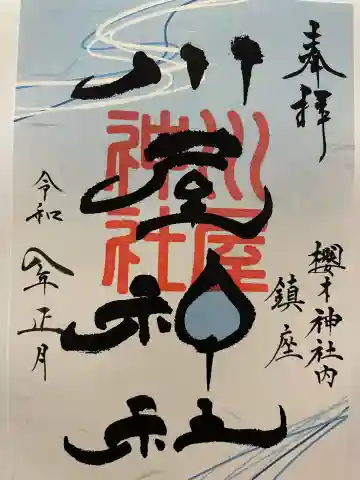 奉拝
櫻木神社内
鎮座
川屋神社
川屋神社
令和
八年正月